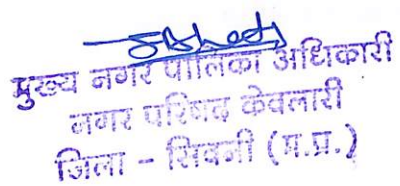 मुख्य नगर पालिका अधिकारी
नगर परिषद केवलारी
जिला - सिवनी (म.प्र.)